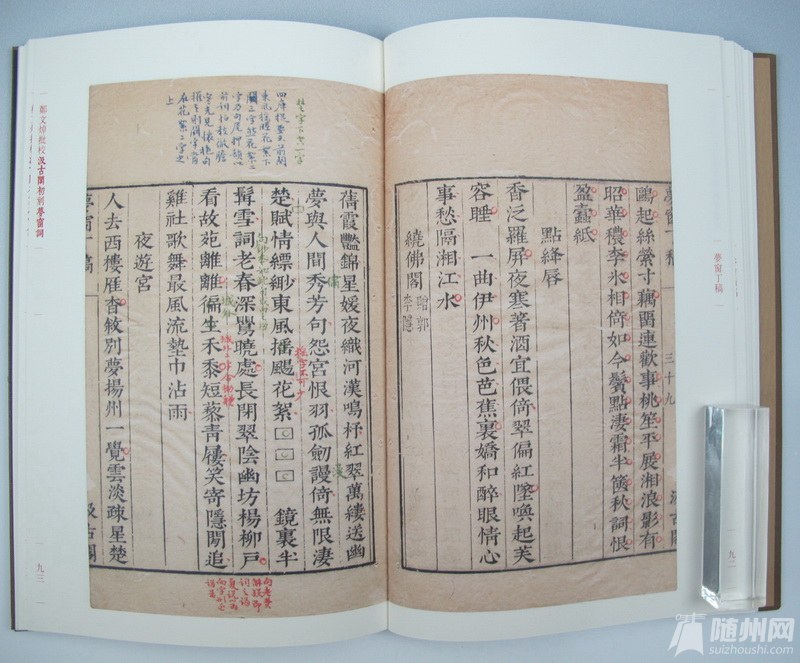 夢窗丁稿
三十九
九二
鷗起絲縈寸藕留連歡事桃笙平展湘浪影有
昭華穠李氷相倚如今鬢點淒霜半篋秋詞恨
盈蠹紙
點絳唇
香泛羅屏夜寒著酒宜偎倚翠偏紅墜喚起芙
容睡 一曲伊州秋色芭蕉裏嬌和醉眼情心
事愁隔湘江水
繞佛閣
蒨霞豔錦星媛夜織河漢鳴杼紅翠萬縷送幽
夢與人間秀芳句怨宮恨羽孤劍謾倚無限淒
楚賦情縹緲東風播颺花絮□□□ 鏡裏半
髯雪詞老春深鶯曉處長閉翠陰幽坊楊柳戶
看故苑離離徧生禾黍短藜青屨笑寄隱閒追
雞社歌舞最風流墊巾沾雨
夜遊宮
人去西樓雁杳敘別夢揚州一覺雲淡疎星楚
汲古閣
鄭文焯批校汲古閣初刻夢窗詞
九三
随州网
suizhoushi.com